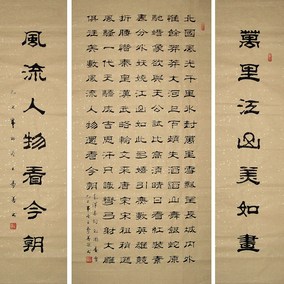 萬里江山美如畫
北國風光千里冰封萬里雪飄望長城內外
惟餘莽莽大河上下頓失滔滔山舞銀蛇原
馳蠟象欲與天公試比高須晴日看紅裝素
裹分外妖嬈江山如此多嬌引無數英雄競
折腰惜秦皇漢武略輸文采唐宗宋祖稍遜
風騷一代天驕成吉思汗只識彎弓射大雕
俱往矣數風流人物還看今朝
風流人物看今朝